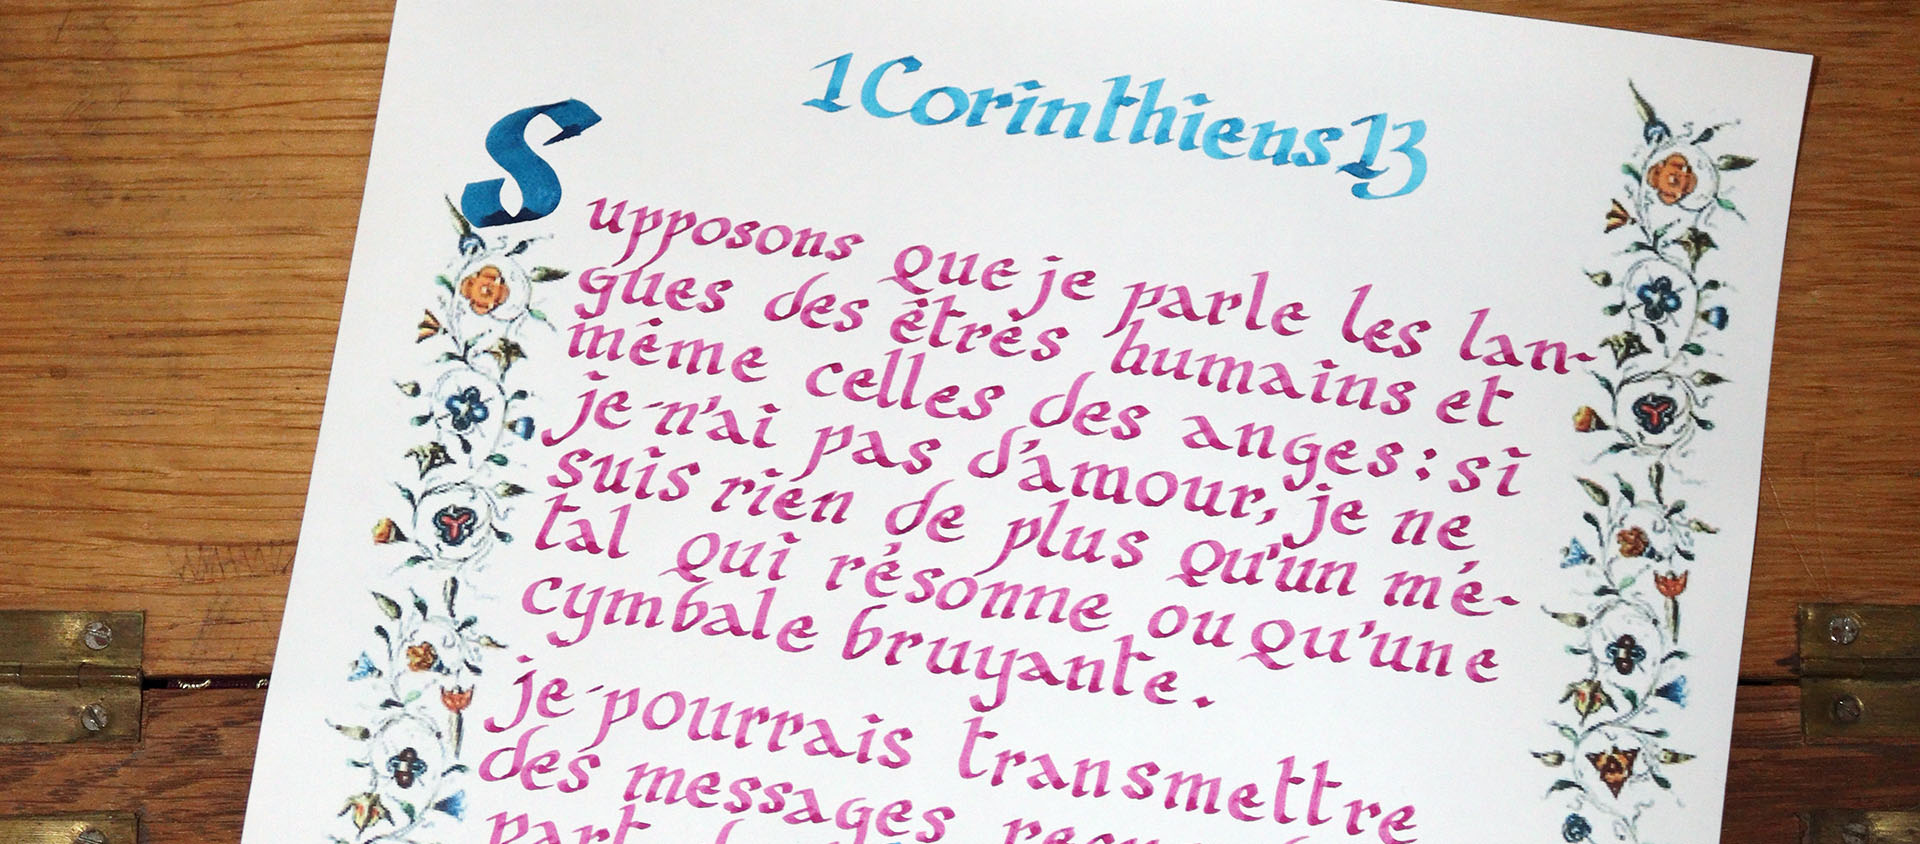 1 Corinthiens 13
Supposons que je parle les lan-
gues des êtres humains et
même celles des anges : si
je n'ai pas d'amour, je ne
suis rien de plus qu'un mé-
tal qui résonne ou qu'une
cymbale bruyante.
je pourrais transmettre
des messages
part